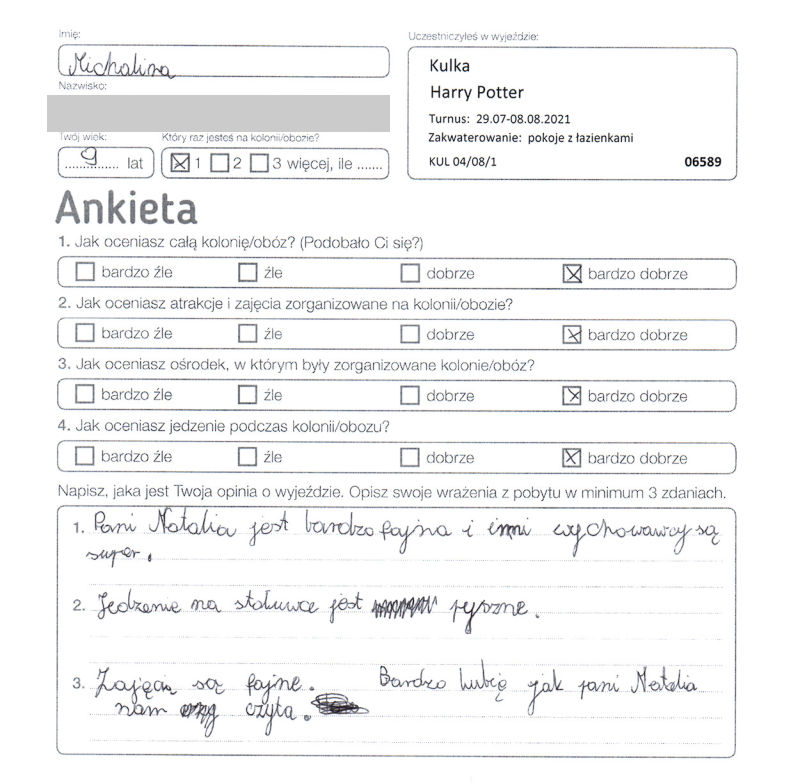 Imię:
Michalina
Nazwisko:
Twój wiek:
9 lat
Który raz jesteś na kolonii/obozie?
1 2 3 więcej, ile .......
Uczestniczyłeś w wyjeździe:
Kulka
Harry Potter
Turnus: 29.07-08.08.2021
Zakwaterowanie: pokoje z łazienkami
KUL 04/08/1 06589
Ankieta
1. Jak oceniasz całą kolonię/obóz? (Podobało Ci się?)
bardzo źle źle dobrze bardzo dobrze
2. Jak oceniasz atrakcje i zajęcia zorganizowane na kolonii/obozie?
bardzo źle źle dobrze bardzo dobrze
3. Jak oceniasz ośrodek, w którym były zorganizowane kolonie/obóz?
bardzo źle źle dobrze bardzo dobrze
4. Jak oceniasz jedzenie podczas kolonii/obozu?
bardzo źle źle dobrze bardzo dobrze
Napisz, jaka jest Twoja opinia o wyjeździe. Opisz swoje wrażenia z pobytu w minimum 3 zdaniach.
1. Pani Natalia jest bardzo fajna i inni wychowawcy są
super.
2. Jedzenie na stołuwce jest pyszne.
3. Zajęcia są fajne. Bardzo lubię jak pani Natalia
nam czyta.